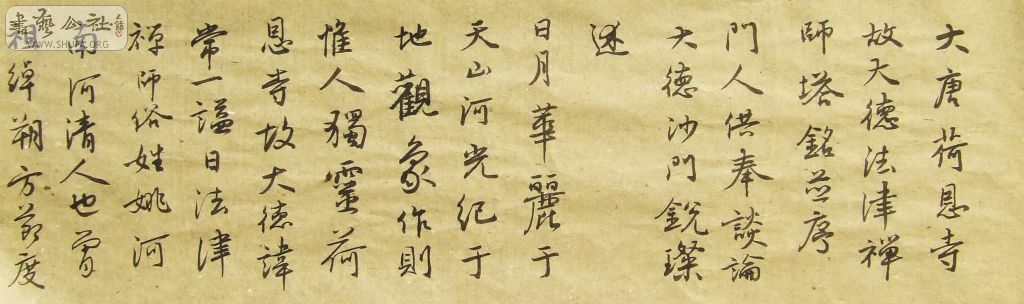 大唐荷恩寺
故大德法津禪
師塔銘並序
門人供奉談論
大德沙門銳璨
述
日月華麗于
天山河光紀于
地觀象作則
惟人獨靈荷
恩寺故大德諱
常一謚曰法津
禪師俗姓姚河
南河清人也曾
祖綽朔方節度
書藝公社
WWW.SHUFA.ORG